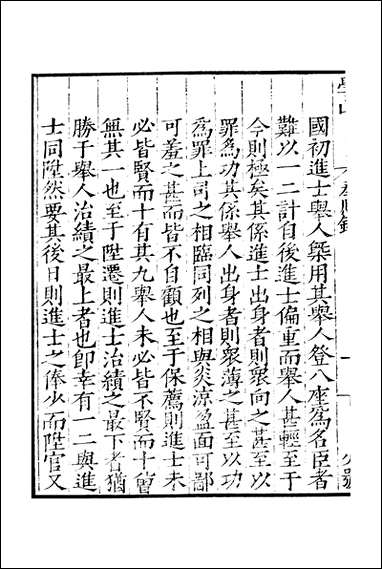 國初進士舉人槩用其舉人登八座爲名臣者
難以一二計自後進士偏重而舉人甚輕至于
今則極矣其係進士出身者則衆向之甚至以
罪爲功其係舉人出身者則衆薄之甚至以功
爲罪上司之相臨同列之相與炎涼盈面可鄙
可羞之甚而皆不自顧也至于保薦則進士未
必皆賢而十有其九舉人未必皆不賢而十曾
無其一也至于陞遷則進士治績之最下者猶
勝于舉人治績之最上者也即幸有一二與進
士同陞然要其後日則進士之俸少而陞官又